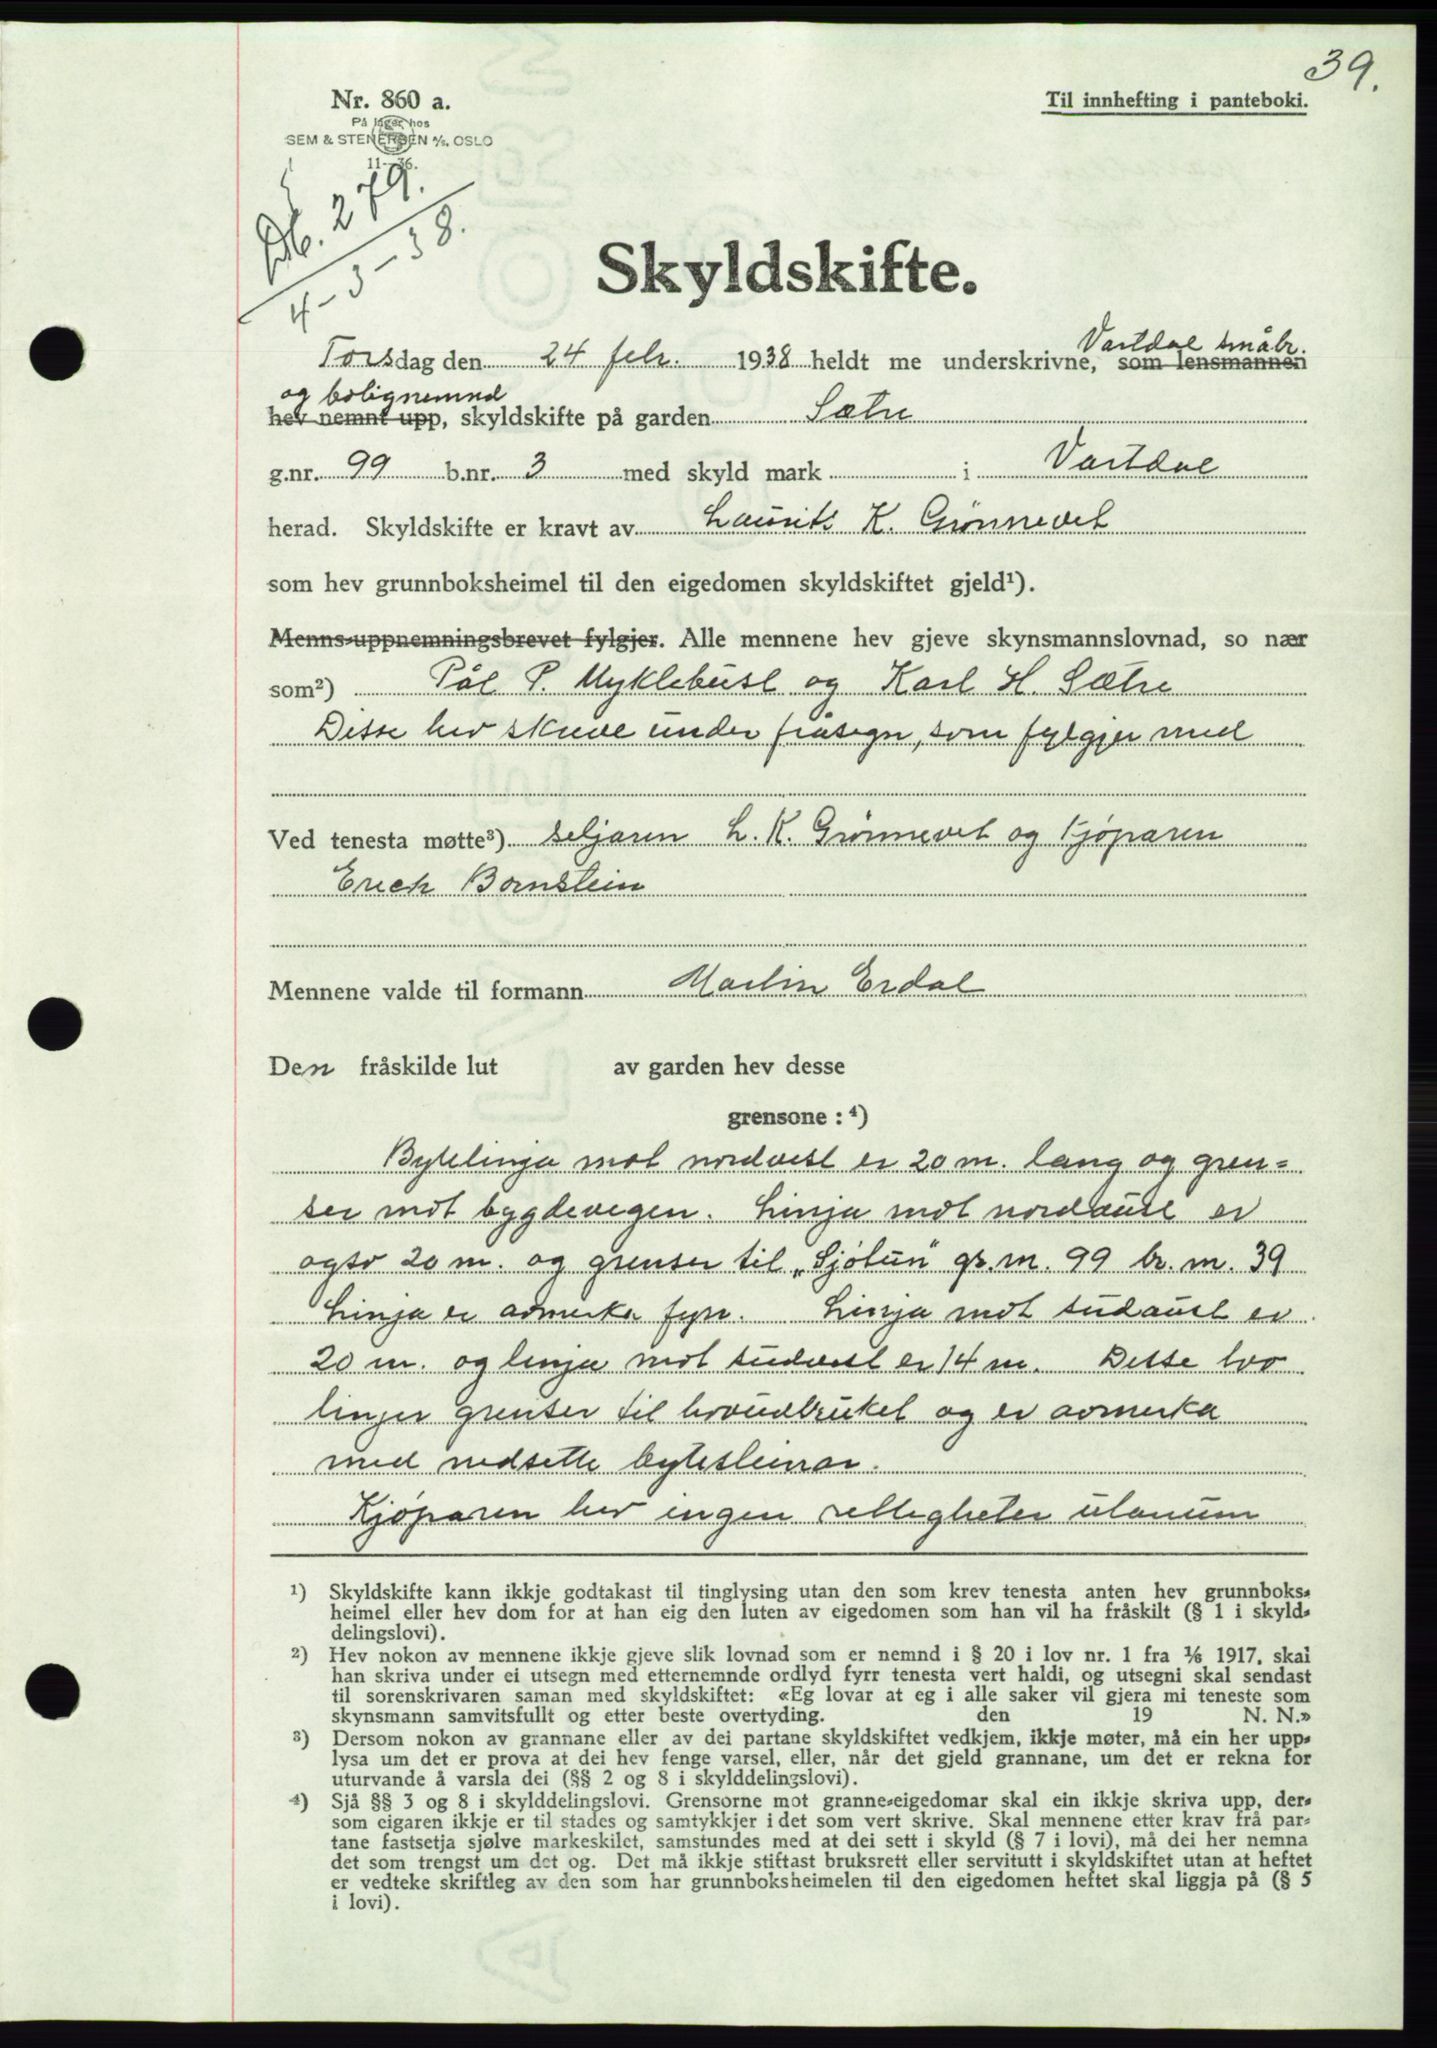 39.
Nr. 860 a.
Til innhefting i panteboki.
På lager hos
SEM & STENERSEN A/S, OSLO
11—36.
Db. 279.
4-3-38.
Skyldskifte.
Vartdal småbr.
Torsdag den 24 febr. 1938 heldt me underskrivne, som lensmannen
og bolignemnd
hev nemnt upp, skyldskifte på garden Sætre
g.nr. 99 b.nr. 3 med skyld mark i Vartdal
herad. Skyldskifte er kravt av Laurits K. Grønnevet
som hev grunnboksheimel til den eigedomen skyldskiftet gjeld¹).
Menns-uppnemningsbrevet fylgjer. Alle mennene hev gjeve skynsmannslovnad, so nær
som²) Pål P. Myklebust og Karl H. Sætre
Disse hev skreve under fråsegn, som fylgjer med
Ved tenesta møtte³) seljaren L. K. Grønnevet og kjøparen
Erich Bornstein
Mennene valde til formann Martin Erdal
Den fråskilde lut av garden hev desse
grensone : ⁴)
Bytelinja mot nordvest er 20 m. lang og gren=
ser mot bygdevegen. Linja mot nordaust er
ogso 20 m. og grenser til „Sjøtun" gr. m. 99 br. m. 39
Linja er avmerka fyrr. Linja mot sudaust er
20 m. og linja mot sudvest er 14 m. Desse tvo
linjer grenser til hovudbruket og er avmerka
med nedsette bytesteinar.
Kjøparen hev ingen rettigheter utanum
¹) Skyldskifte kann ikkje godtakast til tinglysing utan den som krev tenesta anten hev grunnboks-
heimel eller hev dom for at han eig den luten av eigedomen som han vil ha fråskilt (§ 1 i skyld-
delingslovi).
²) Hev nokon av mennene ikkje gjeve slik lovnad som er nemnd i § 20 i lov nr. 1 fra ¹/₆ 1917, skal
han skriva under ei utsegn med etternemnde ordlyd fyrr tenesta vert haldi, og utsegni skal sendast
til sorenskrivaren saman med skyldskiftet: «Eg lovar at eg i alle saker vil gjera mi teneste som
skynsmann samvitsfullt og etter beste overtyding. den 19 N. N.»
³) Dersom nokon av grannane eller av dei partane skyldskiftet vedkjem, ikkje møter, må ein her upp-
lysa um det er prova at dei hev fenge varsel, eller, når det gjeld grannane, um det er rekna for
uturvande å varsla dei (§§ 2 og 8 i skylddelingslovi).
⁴) Sjå §§ 3 og 8 i skylddelingslovi. Grensorne mot granne-eigedomar skal ein ikkje skriva upp, der-
som eigaren ikkje er til stades og samtykkjer i det som vert skrive. Skal mennene etter krav frå par-
tane fastsetja sjølve markeskilet, samstundes med at dei sett i skyld (§ 7 i lovi), må dei her nemna
det som trengst um det og. Det må ikkje stiftast bruksrett eller servitutt i skyldskiftet utan at heftet
er vedteke skriftleg av den som har grunnboksheimelen til den eigedomen heftet skal liggja på (§ 5
i lovi).